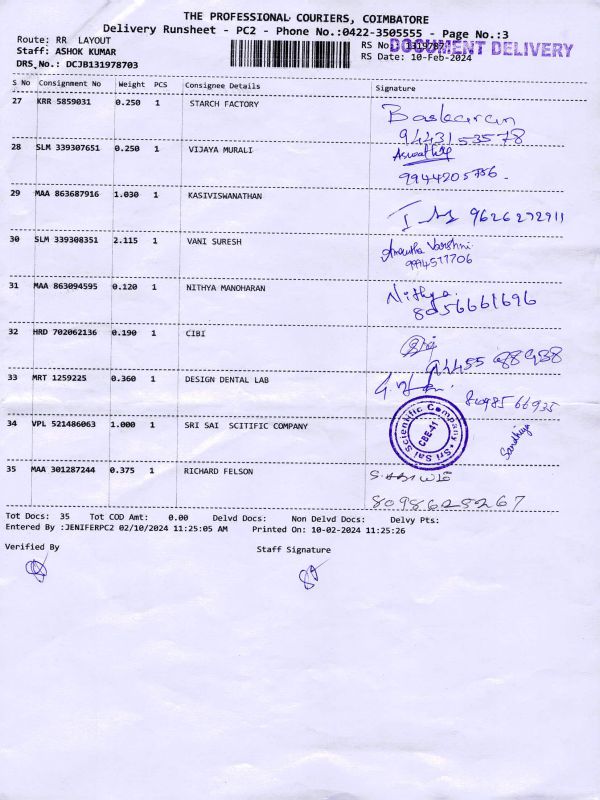 THE PROFESSIONAL COURIERS, COIMBATORE
Delivery Runsheet - PC2 - Phone No.:0422-3505555 - Page No.:3
Route: RR LAYOUT
RS No: 1319787
DOCUMENT DELIVERY
Staff: ASHOK KUMAR
RS Date: 10-Feb-2024
DRS No.: DCJB131978703
S No Consignment No Weight PCS Consignee Details Signature
27 KRR 5859031 0.250 1 STARCH FACTORY Baskaran
9443153578
28 SLM 339307651 0.250 1 VIJAYA MURALI
29 MAA 863687916 1.030 1 KASIVISWANATHAN 9626272911
30 SLM 339308351 2.115 1 VANI SURESH Amrutha Varshni
9994577706
31 MAA 863094595 0.120 1 NITHYA MANOHARAN Nithya.
8056661696
32 HRD 702062136 0.190 1 CIBI
33 MRT 1259225 0.360 1 DESIGN DENTAL LAB
34 VPL 521486063 1.000 1 SRI SAI SCITIFIC COMPANY
Sri Sai Scientific Company
CBE-41
35 MAA 301287244 0.375 1 RICHARD FELSON
8098625267
Tot Docs: 35 Tot COD Amt: 0.00 Delvd Docs: Non Delvd Docs: Delvy Pts:
Entered By :JENIFERPC2 02/10/2024 11:25:05 AM Printed On: 10-02-2024 11:25:26
Verified By Staff Signature